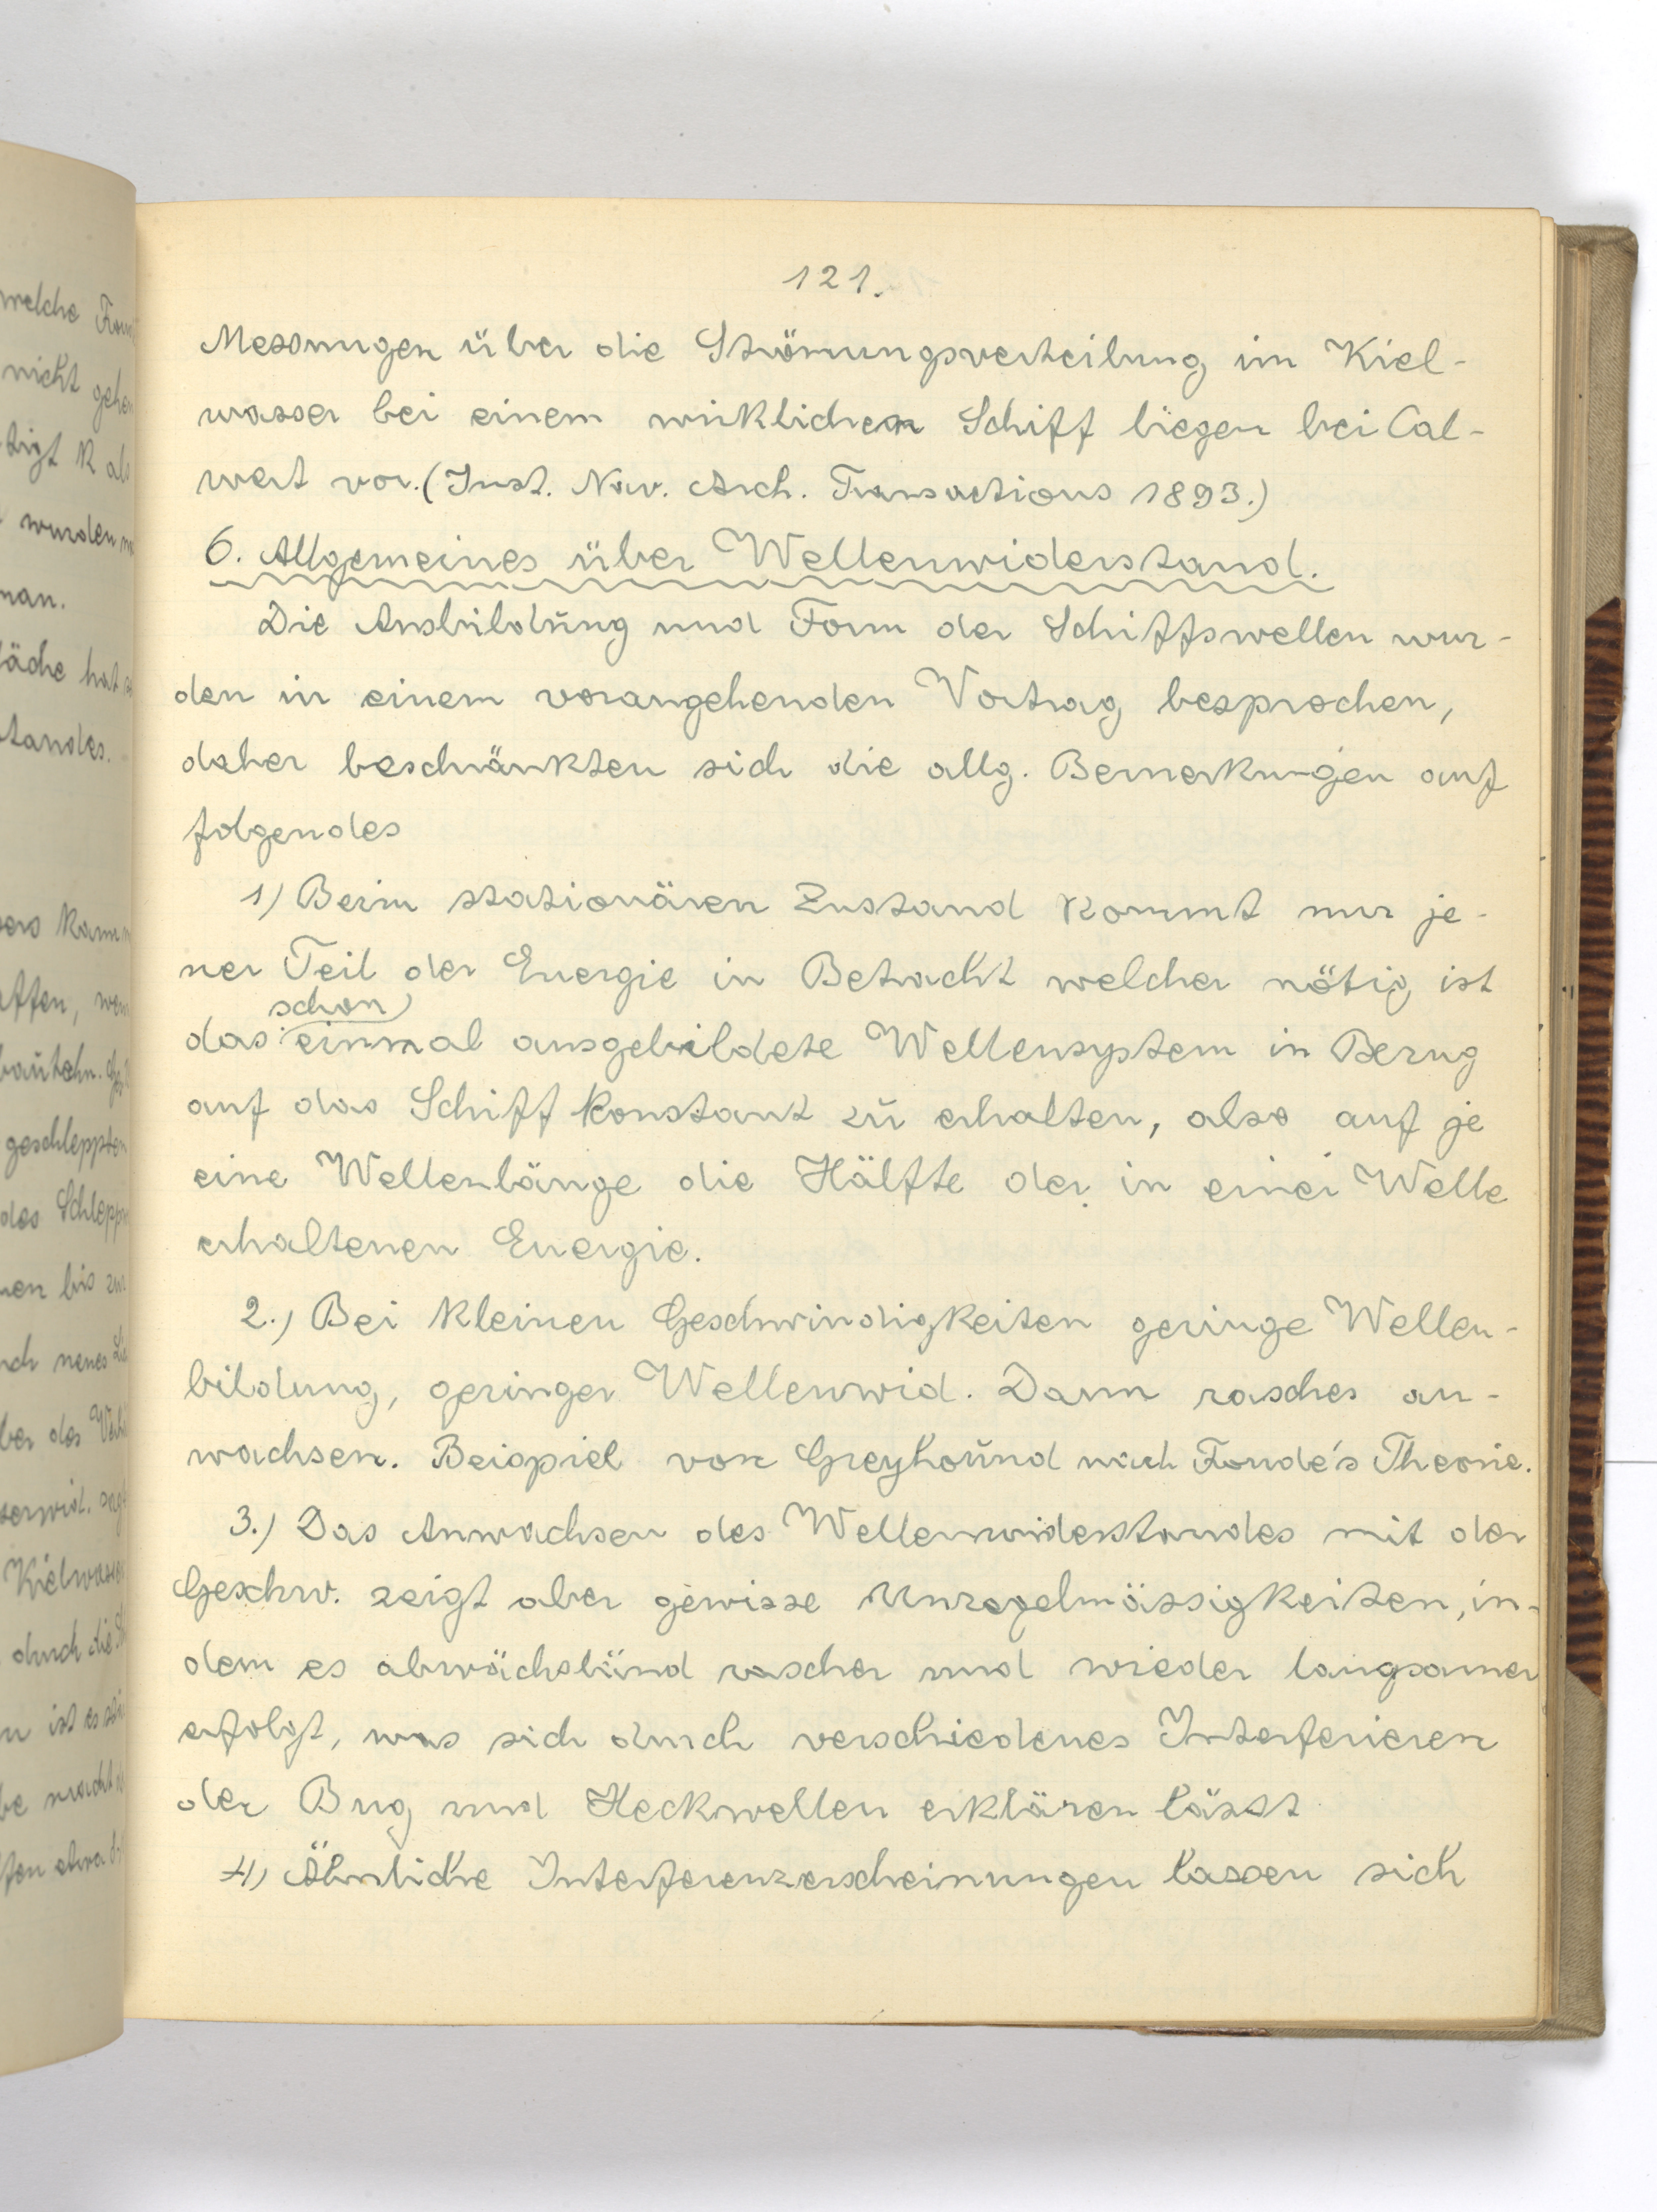 welche Form
nicht gehen
tigt k als
wurden
man.
läche hat
standes.
kann
affen, wen
geschleppten
des Schlepp
en bis zur
ch neues
ber das
serwid.
Kielwasser
durch die
n ist es
be macht
fen etwa
121.
Messungen über die Strömungsverteilung im Kiel-
wasser bei einem wirklichen Schiff liegen bei Cal-
vert vor. (Inst. Nav. Arch. Transactions 1893.)
6. Allgemeines über Wellenwiderstand.
Die Ausbildung und Form der Schiffswellen wur-
den in einem vorangehenden Vortrag besprochen,
daher beschränkten sich die allg. Bemerkungen auf
folgendes
1) Beim stationären Zustand kommt nur je-
ner Teil der Energie in Betracht welcher nötig ist
schon
das einmal ausgebildete Wellensystem in Bezug
auf das Schiff konstant zu erhalten, also auf je
eine Wellenlänge die Hälfte der in einer Welle
erhaltenen Energie.
2.) Bei kleinen Geschwindigkeiten geringe Wellen-
bildung, geringer Wellenwid. Dann rasches an-
wachsen. Beispiel von Greyhound nach Froude's Theorie.
3.) Das Anwachsen des Wellenwiderstandes mit der
Geschw. zeigt aber gewisse Unregelmässigkeiten, in-
dem es abwächslünd rascher und wieder langsamer
erfolgt, was sich durch verschiedenes Interferieren
der Bug und Heckwellen erklären lässt
4) Ähnliche Interferenzerscheinungen lassen sich